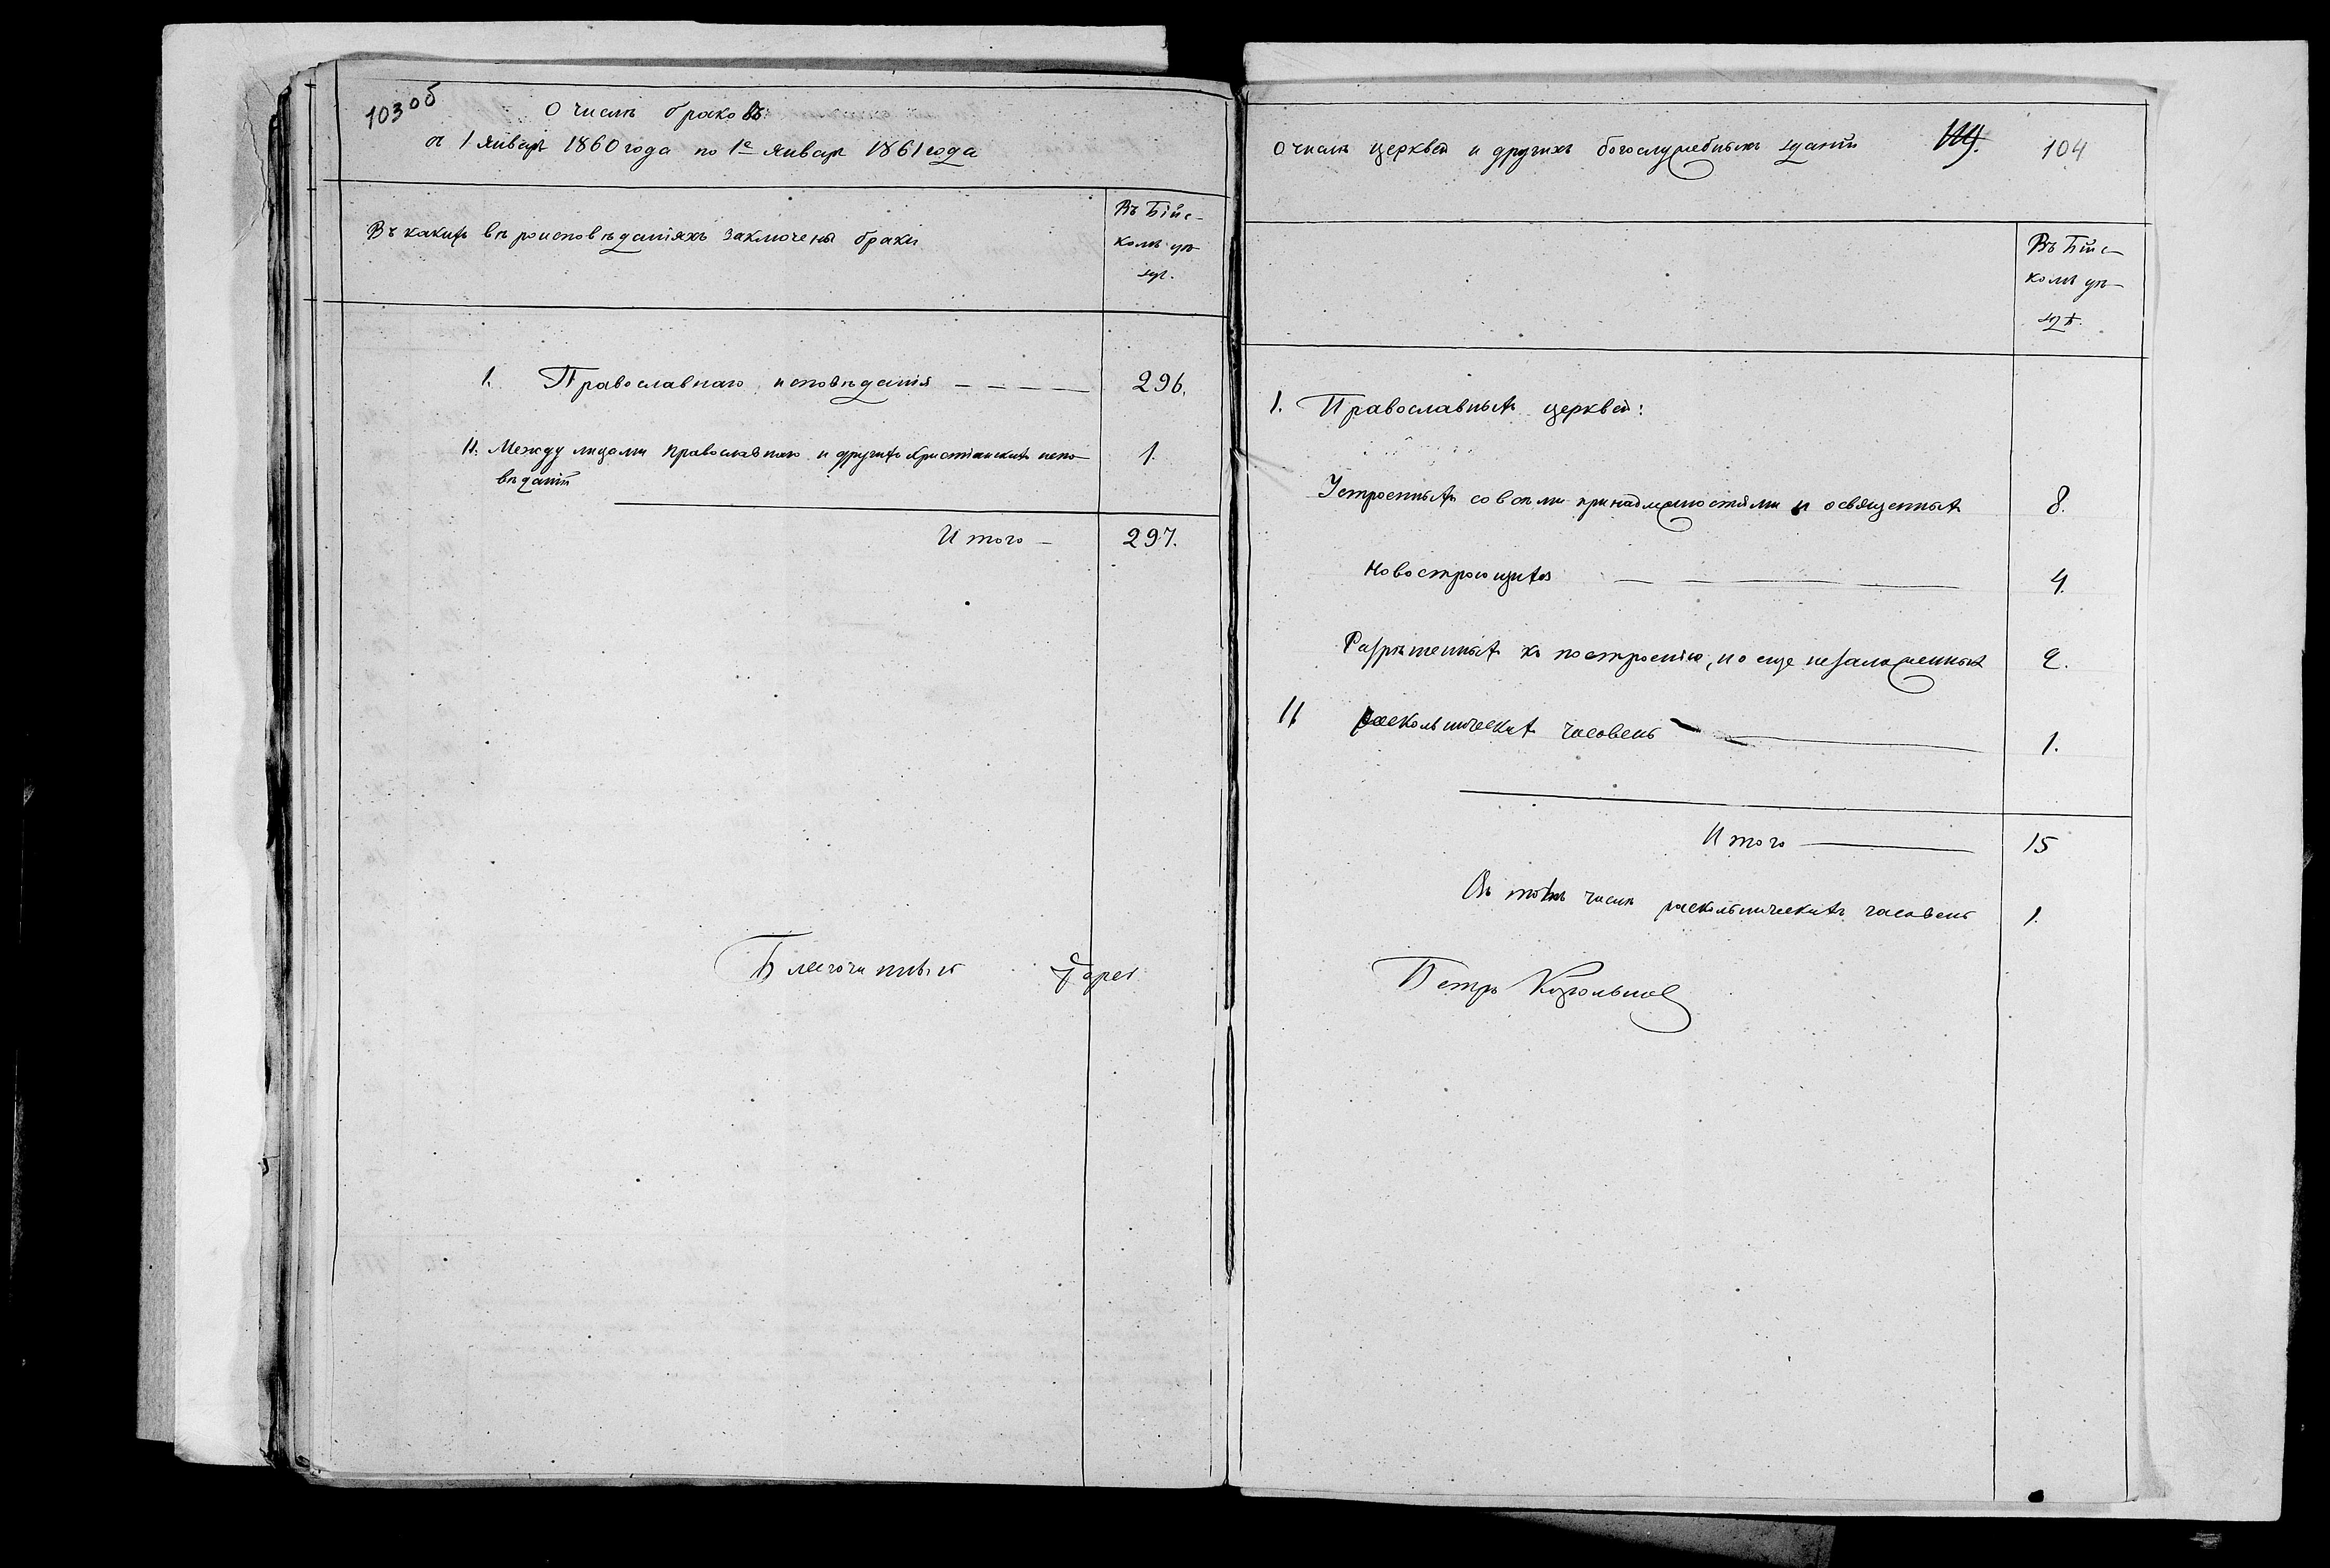 103 об
О числѣ браковъ
съ 1 Января 1860 года по 1е Января 1861 года
Въ какихъ вѣроисповѣданіяхъ заключены браки
Въ Бійс-
комъ уѣ-
здѣ.
I. Православнаго исповѣданія 296.
II. Между лицами Православнаго и другихъ Христіанскихъ испо- 1.
вѣданій
Итого 297.
Благочинный
104
О числѣ церквей и другихъ богослужебныхъ зданій
Въ Бійс-
комъ уѣ-
здѣ.
I. Православныхъ церквей:
Устроенныхъ со всѣми принадлежностями и освященныхъ 8.
Новостроющихся 4.
Разрѣшенныхъ къ построенію, но еще незаложенныхъ 2.
II раскольническихъ часовень 1.
Итого 15
Въ томъ числѣ раскольническихъ часовень 1.
Петръ